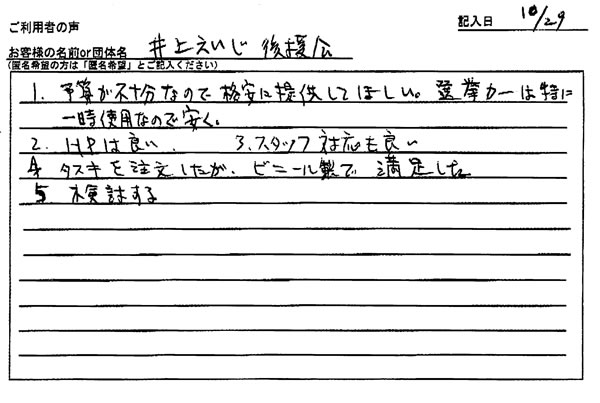 ご利用者の声
記入日 10/29
お客様の名前or団体名 井上えいじ 後援会
(匿名希望の方は「匿名希望」とご記入ください)
1. 予算が不十分なので格安に提供してほしい。選挙カーは特に
一時使用なので安く。
2. HPは良い. 3.スタッフ対応も良い
4 タスキを注文したが、ビニール製で満足した
5 検討する